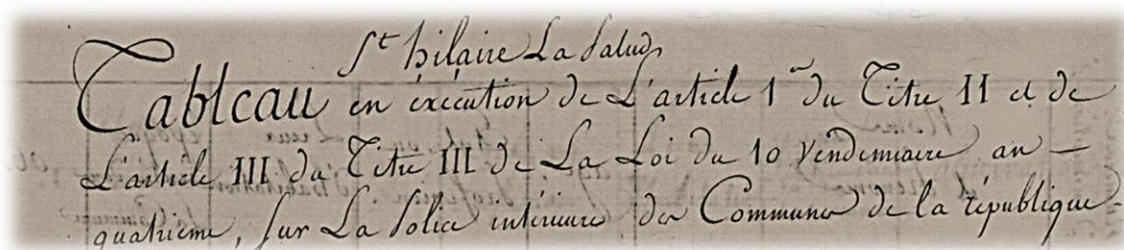 St hilaire La Palud
Tableau en éxécution de L'article 1er du Titre II et de
L'article III du Titre III de La Loi du 10 Vendemiaire an —
quatrieme, sur La Police intérieure des Communes de la république.